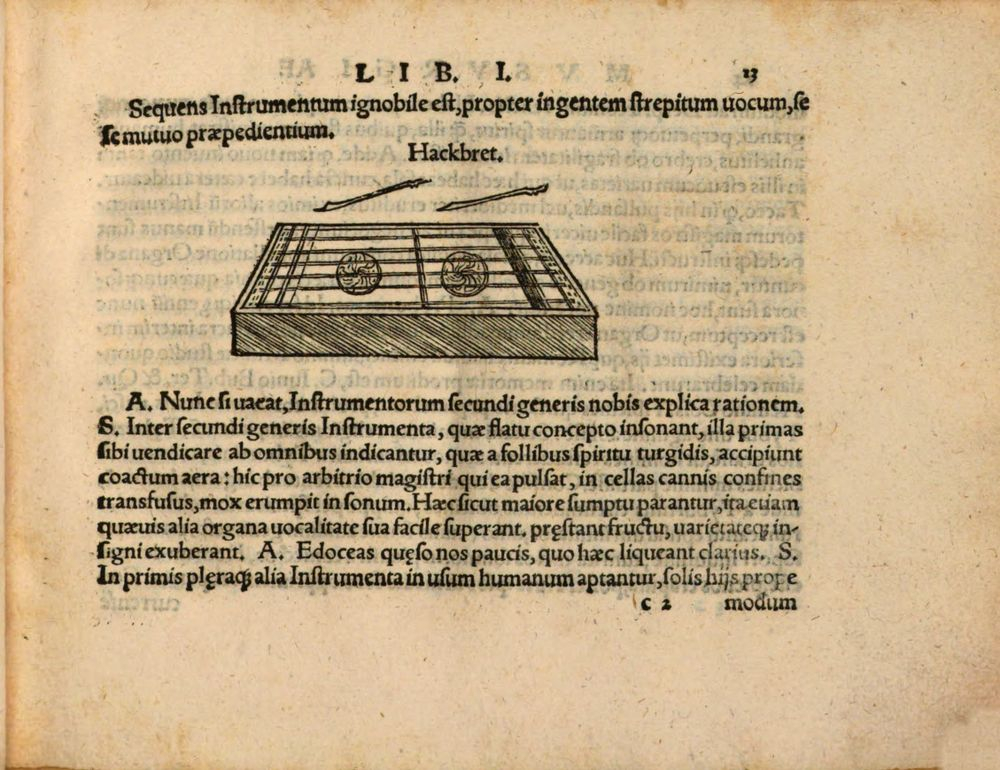 LIB. I. 13
Sequens Inſtrumentum ignobile eſt, propter ingentem ſtrepitum uocum, ſe
ſe mutuo præpedientium.
Hackbret.
A. Nunc ſi uacat, Inſtrumentorum ſecundi generis nobis explica rationem.
S. Inter ſecundi generis Inſtrumenta, quæ flatu concepto inſonant, illa primas
ſibi uendicare ab omnibus indicantur, quæ a follibus ſpiritu turgidis, accipiunt
coactum aera: hic pro arbitrio magiſtri qui ea pulſat, in cellas cannis confines
transfuſus, mox erumpit in ſonum. Hæc ſicut maiore ſumptu parantur, ita etiam
quæuis alia organa uocalitate ſua facile ſuperant. pręſtant fructu, uarietateq́; in-
ſigni exuberant. A. Edoceas quęſo nos paucis, quo hæc liqueant clarius. S.
In primis plęraq́; alia Inſtrumenta in uſum humanum aptantur, ſolis hijs prope
c 2 modum